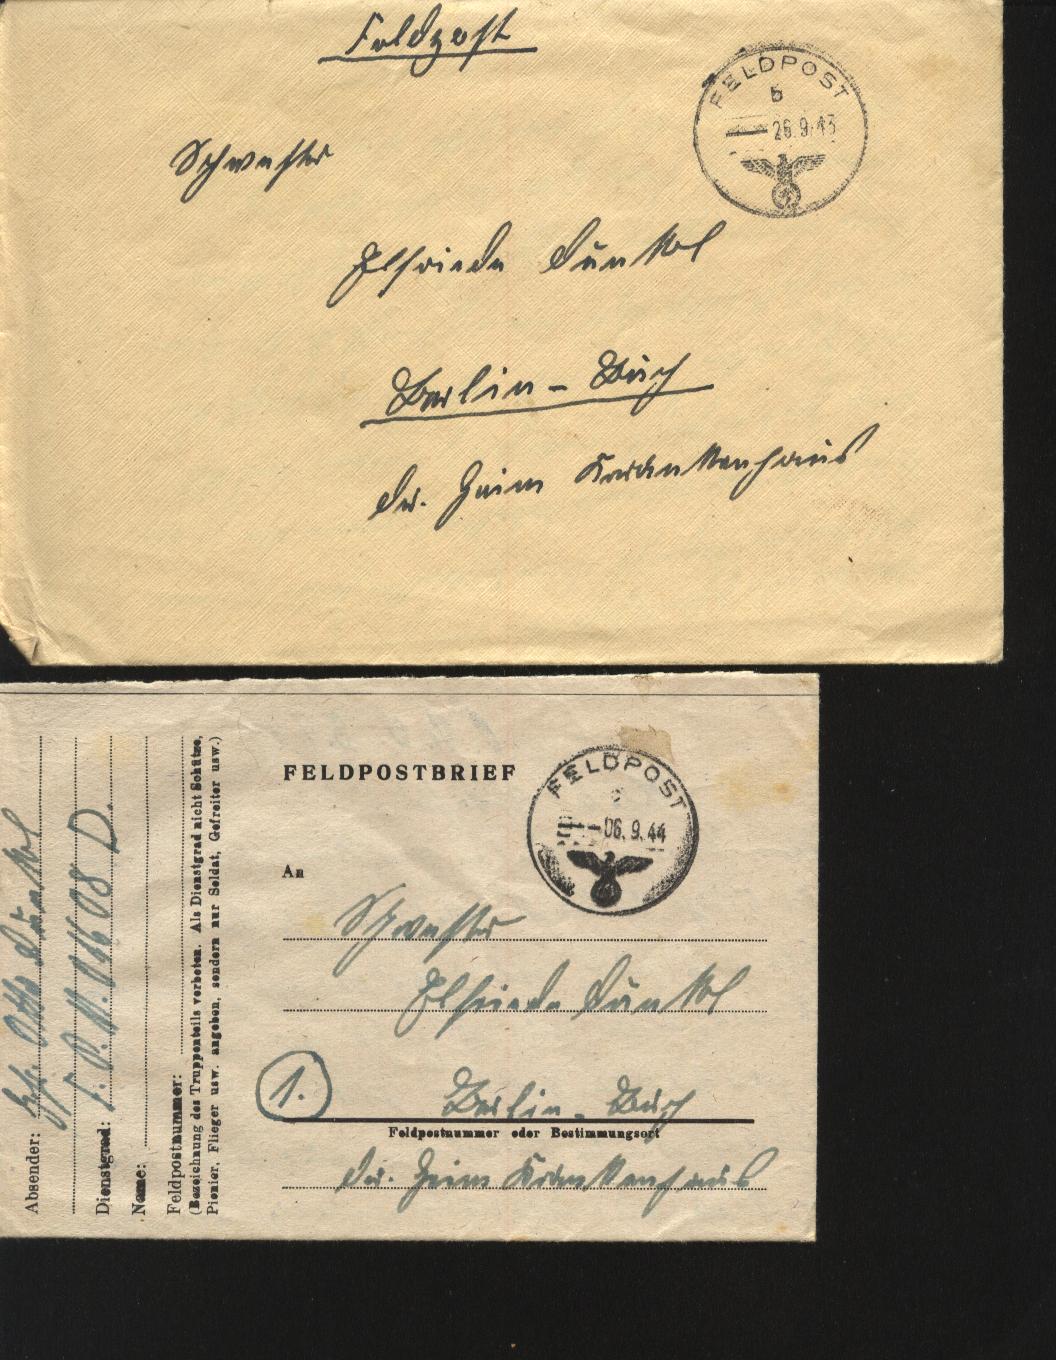 Feldpost
FELDPOST
b
26.9.43
Schwester
Elfriede Dünkel
Berlin - Buch
Dr. Heim Krankenhaus
FELDPOSTBRIEF
FELDPOST
c
06.9.44
An
Schwester
Elfriede Dünkel
1.
Berlin - Buch
Feldpostnummer oder Bestimmungsort
Dr. Heim Krankenhaus
Absender: Otto Dünkel
Dienstgrad: F.P.N. 06608 D.
Name:
Feldpostnummer:
(Bezeichnung des Truppenteils verboten. Als Dienstgrad nicht Schütze,
Pionier, Flieger usw. angeben, sondern nur Soldat, Gefreiter usw.)